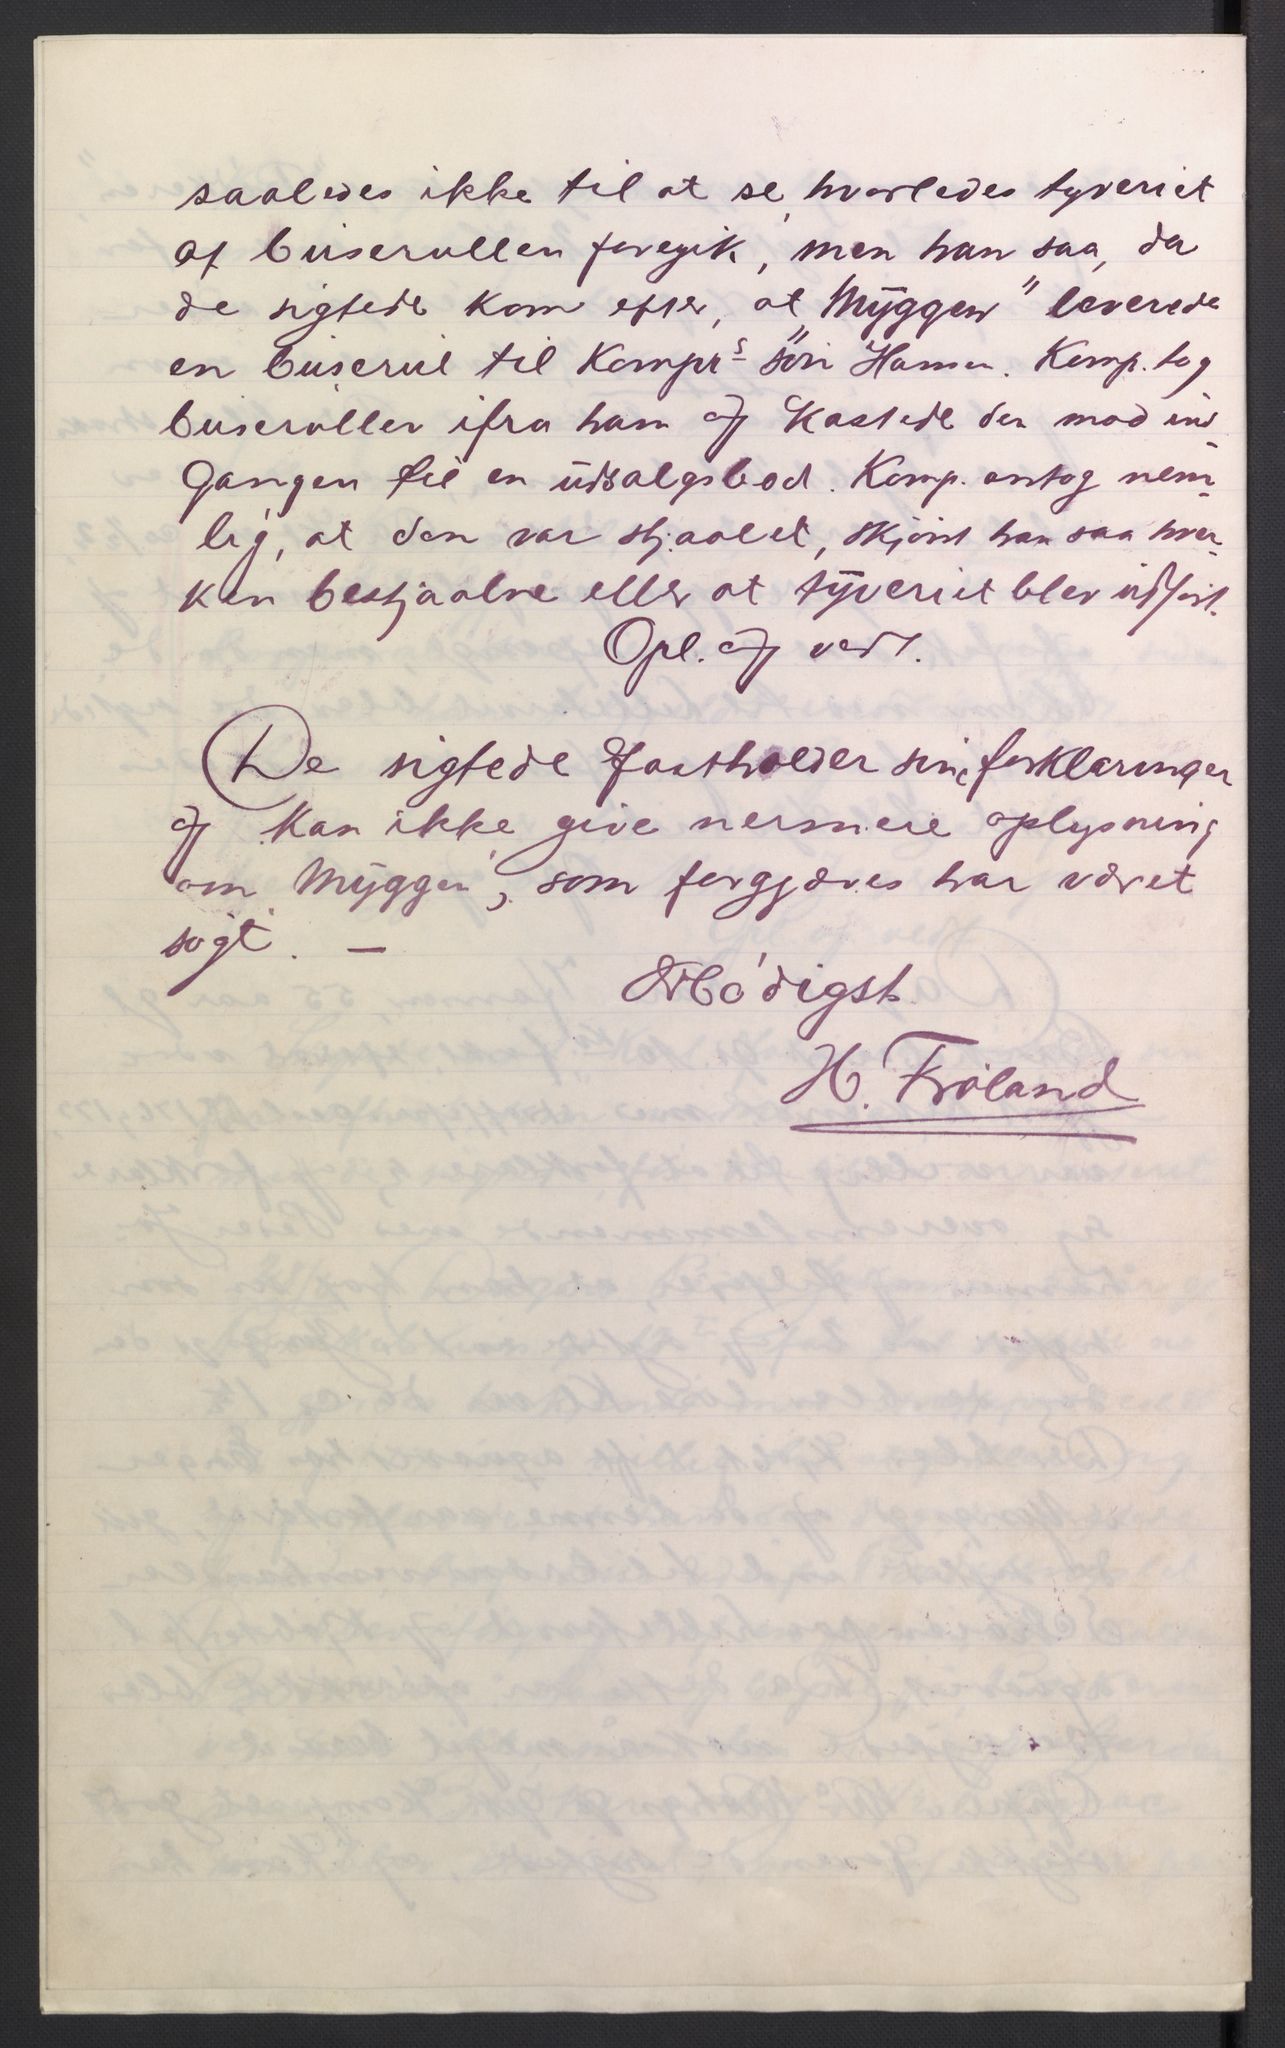 saaledes ikke til at se, hvorledes tyveriet
af buserullen foregik, men han saa, da
de sigtede kom efter, at "Myggen" leverede
en buserul til Kompts søn Hansen. Komp. tog
buserullen ifra ham og kastede den mod ind
gangen til en udsalgsbod. Komp. antog nem-
lig, at den var stjaalet, skjönt han saa hver-
ken bestjaalne eller at tyveriet blev udfört.
Opl. og vedt.
De sigtede fastholder sine forklaringer
og kan ikke give nermere oplysning
om "Myggen", som forgjæves har været
søgt. —
Ærbødigst
H. Fröland